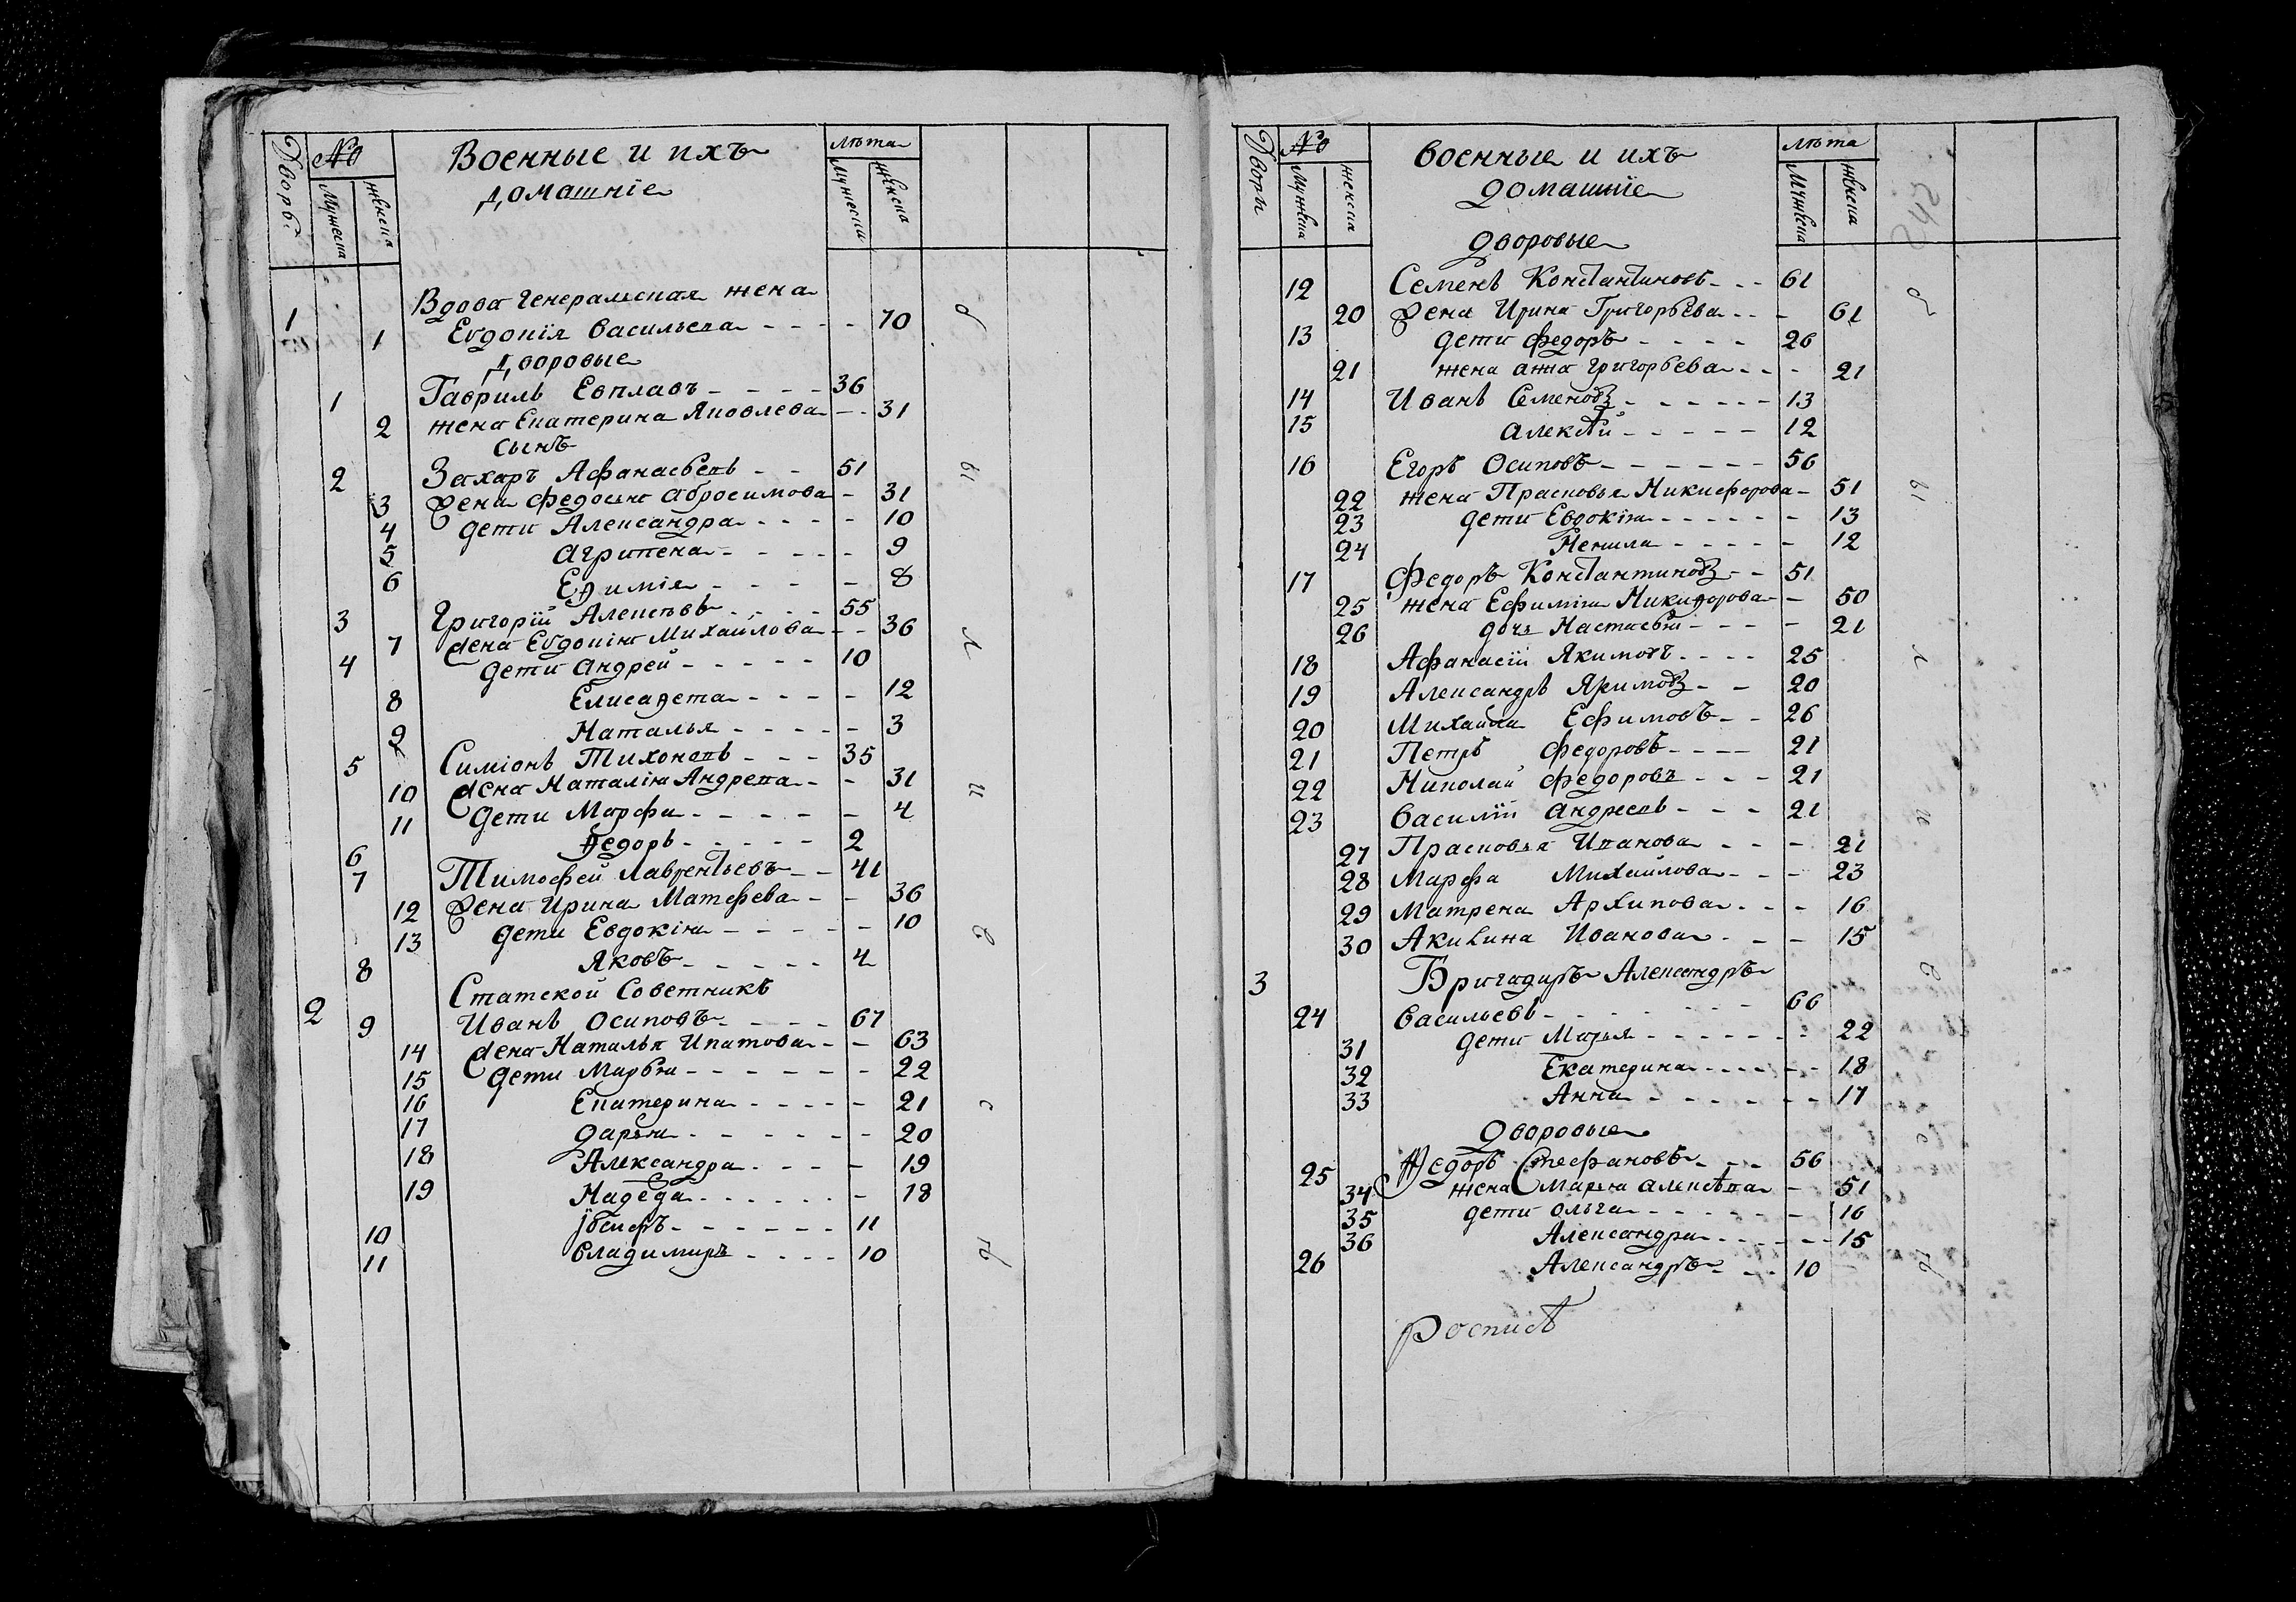 Дворъ № Военные и ихъ лѣта
Мужеска женска домашнїе Мужеска женска
Вдова Генеральская жена
1 1 Евдокія Васильева - - - - 70
Дворовые
1 Гавриль Евплавъ - - - - 36
2 жена Екатерина Яковлева - - 31
сынъ
2 Захаръ Афанасьевъ - - 51
3 жена Федосья Абросимова - 31
4 дети Александра - - - - 10
5 Агрипена - - - - - 9
6 Ефимія - - - - 8
3 Григорїй Алексѣевъ - - - - 55
7 жена Евдокія Михайлова - - 36
4 дети Андрей - - - - - 10
8 Елисавета - - - - 12
9 Наталья - - - - - 3
5 Симіонъ Тихоновъ - - - 35
10 жена Наталія Андреева - - 31
11 дети Марфа - - - - - 4
6 Федоръ - - - - - 2
7 Тимофей Лаврентьевъ - - 41
12 жена Ирина Матфева - - 36
13 дети Евдокія - - - - - 10
8 Яковъ - - - - - 4
Статской Советникъ
2 9 Иванъ Осиповъ - - - - 67
14 жена Наталья Ипатова - - 63
15 дети Марья - - - - - - 22
16 Екатерина - - - - - 21
17 дарья - - - - - - - 20
18 Александра - - - - 19
19 Надеда - - - - - - - 18
10 Їосифъ - - - - - - 11
11 Владимиръ - - - - 10
б
ы
л
и
в
с
ѣ
Дворы № военные и ихъ лѣта
Мужеска женска домашнїе Мужеска женска
дворовые
12 Семенъ Константиновъ - - - 61
20 жена Ирина Григорьева - - - 61
13 дети федоръ - - - - 26
21 жена анна григорьева - - - - 21
14 Иванъ Семеновъ - - - - - - 13
15 алексѣй - - - - - 12
16 Егоръ Осиповъ - - - - - - 56
22 жена Прасковья Никифорова - 51
23 дети Евдокія - - - - - - 13
24 Ненила - - - - - 12
17 Федоръ Константиновъ - - 51
25 жена Ефимія Никифорова - 50
26 дочь Настасья - - - - 21
18 Афанасій Якимовъ - - - - 25
19 Александръ Якимовъ - - 20
20 Михайла Ефимовъ - - 26
21 Петръ федоровъ - - - - 21
22 Николай федоровъ - - - 21
23 Василїй андреевъ - - - 21
27 Прасковья Иванова - - - 21
28 Марфа Михайлова - - - 23
29 Матрена Архипова - - - 16
30 Акилина Иванова - - - 15
3 Бригадиръ Александръ
24 Васильевъ - - - - - - 66
31 дети Марья - - - - - - - 22
32 Екатерина - - - - - - 18
33 Анна - - - - - - - 17
дворовые
25 Федоръ Стефановъ - - - 56
34 жена Марья алексѣева - 51
35 дети ольга - - - - - - - 16
36 Александра - - - - - - 15
26 Александръ - - - 10
роспись
б
ы
л
и
в
с
ѣ